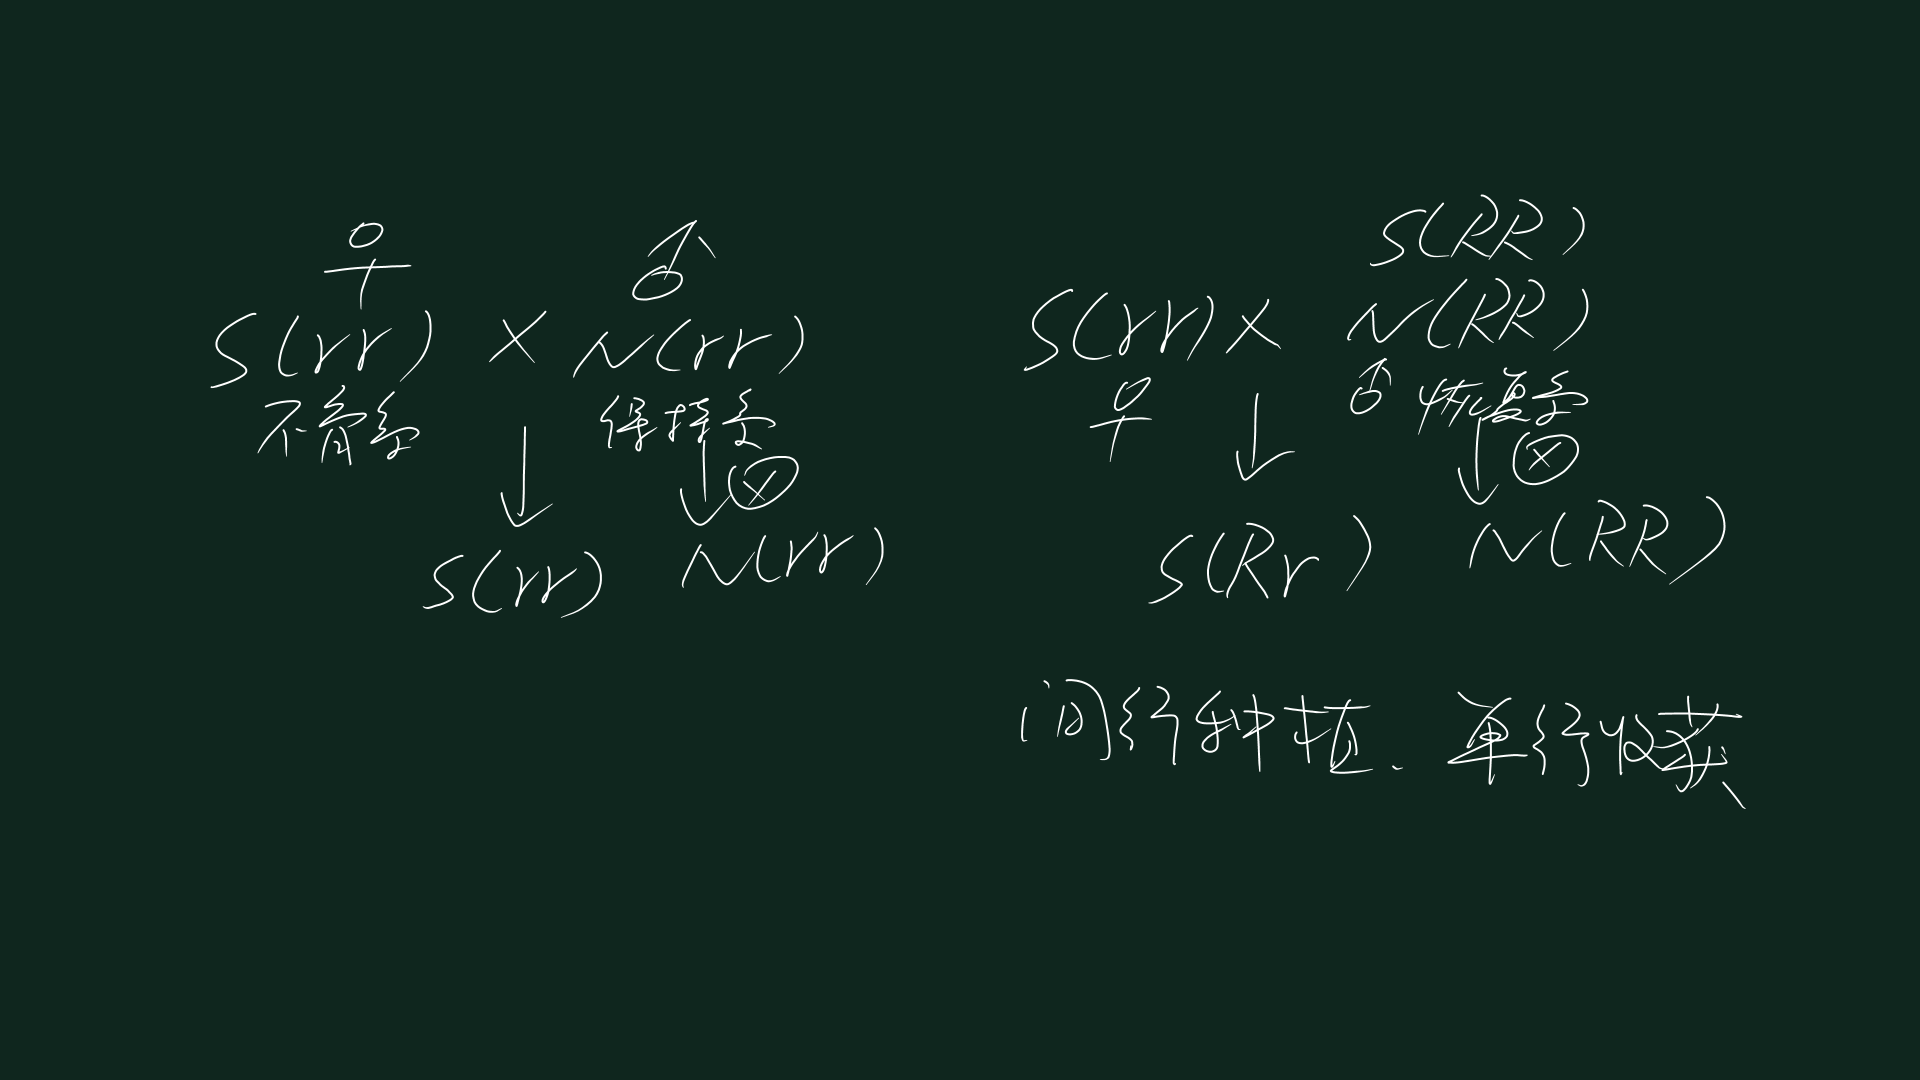 ♀ ♂
S(rr) × N(rr)
不育系 保持系
↓ ↓ ⊗
S(rr) N(rr)
S(RR)
S(rr) × N(RR)
♀ ↓ ♂ 恢复系
↓ ⊗
S(Rr) N(RR)
间行种植. 单行收获